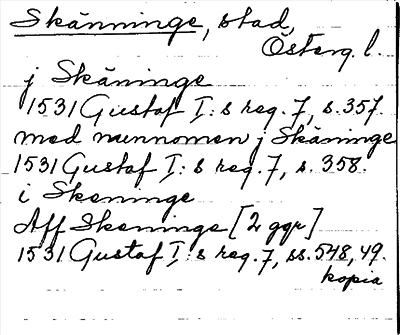 Skänninge, stad,
Österg. l.
j Skäninge
1531 Gustaf I:s reg. 7, s. 357.
med mennomen j Skäninge
1531 Gustaf I:s reg. 7, s. 358.
i Skeninge
Aff Skeninge [2 ggr]
1531 Gustaf I:s reg. 7, ss. 548, 49.
kopia